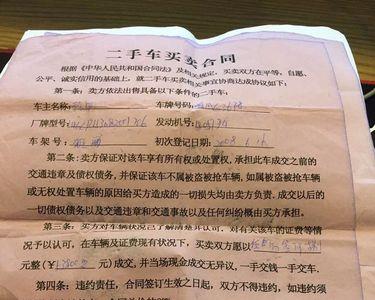 二手车买卖合同
根据《中华人民共和国合同法》及相关规定，买卖双方在平等、自愿、
公平、诚实信用的基础上，就二手车买卖相关事宜协商达成协议如下：
第一条：卖方依法出售具备以下条件的二手车：
车主名称： 车牌号码：
厂牌型号： 发动机号：
车架号： 初次登记日期：2008.6.16
第二条：卖方保证对该车享有所有权或处置权，承担此车成交之前的
交通违章及债权债务，并保证该车不属被盗被抢车辆，如属被盗被抢车辆
或无权处置车辆的原因给买方造成的一切损失均由卖方负责。成交以后的
一切债权债务以及交通违章和交通事故以及任何纠纷概由买方承担。
第三条：卖方对车辆状况已了解清楚并认可，对有关该车的证费等情
况予以认可，在车辆及证费现有状况下，买卖双方愿以
元整（￥ ）成交，并当场现金成交无异议，一手交钱一手交车。
第四条：违约责任，合同签订生效之日起，双方不得违约，如违约须